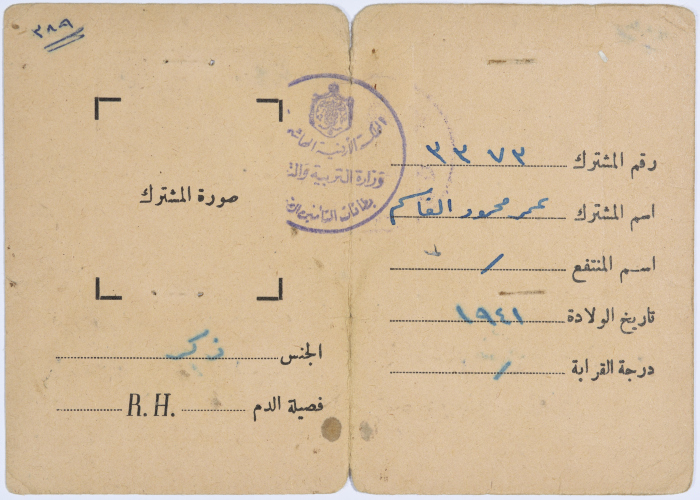 رقم المشترك ٣٣٧٣
اسم المشترك عمر محمود القاسم
اسم المنتفع /
تاريخ الولادة ١٩٤١
درجة القرابة /
المملكة الأردنية الهاشمية
وزارة التربية والت
بطاقات التأمين
٣٨٩
صورة المشترك
الجنس ذكر
فصيلة الدم R.H.